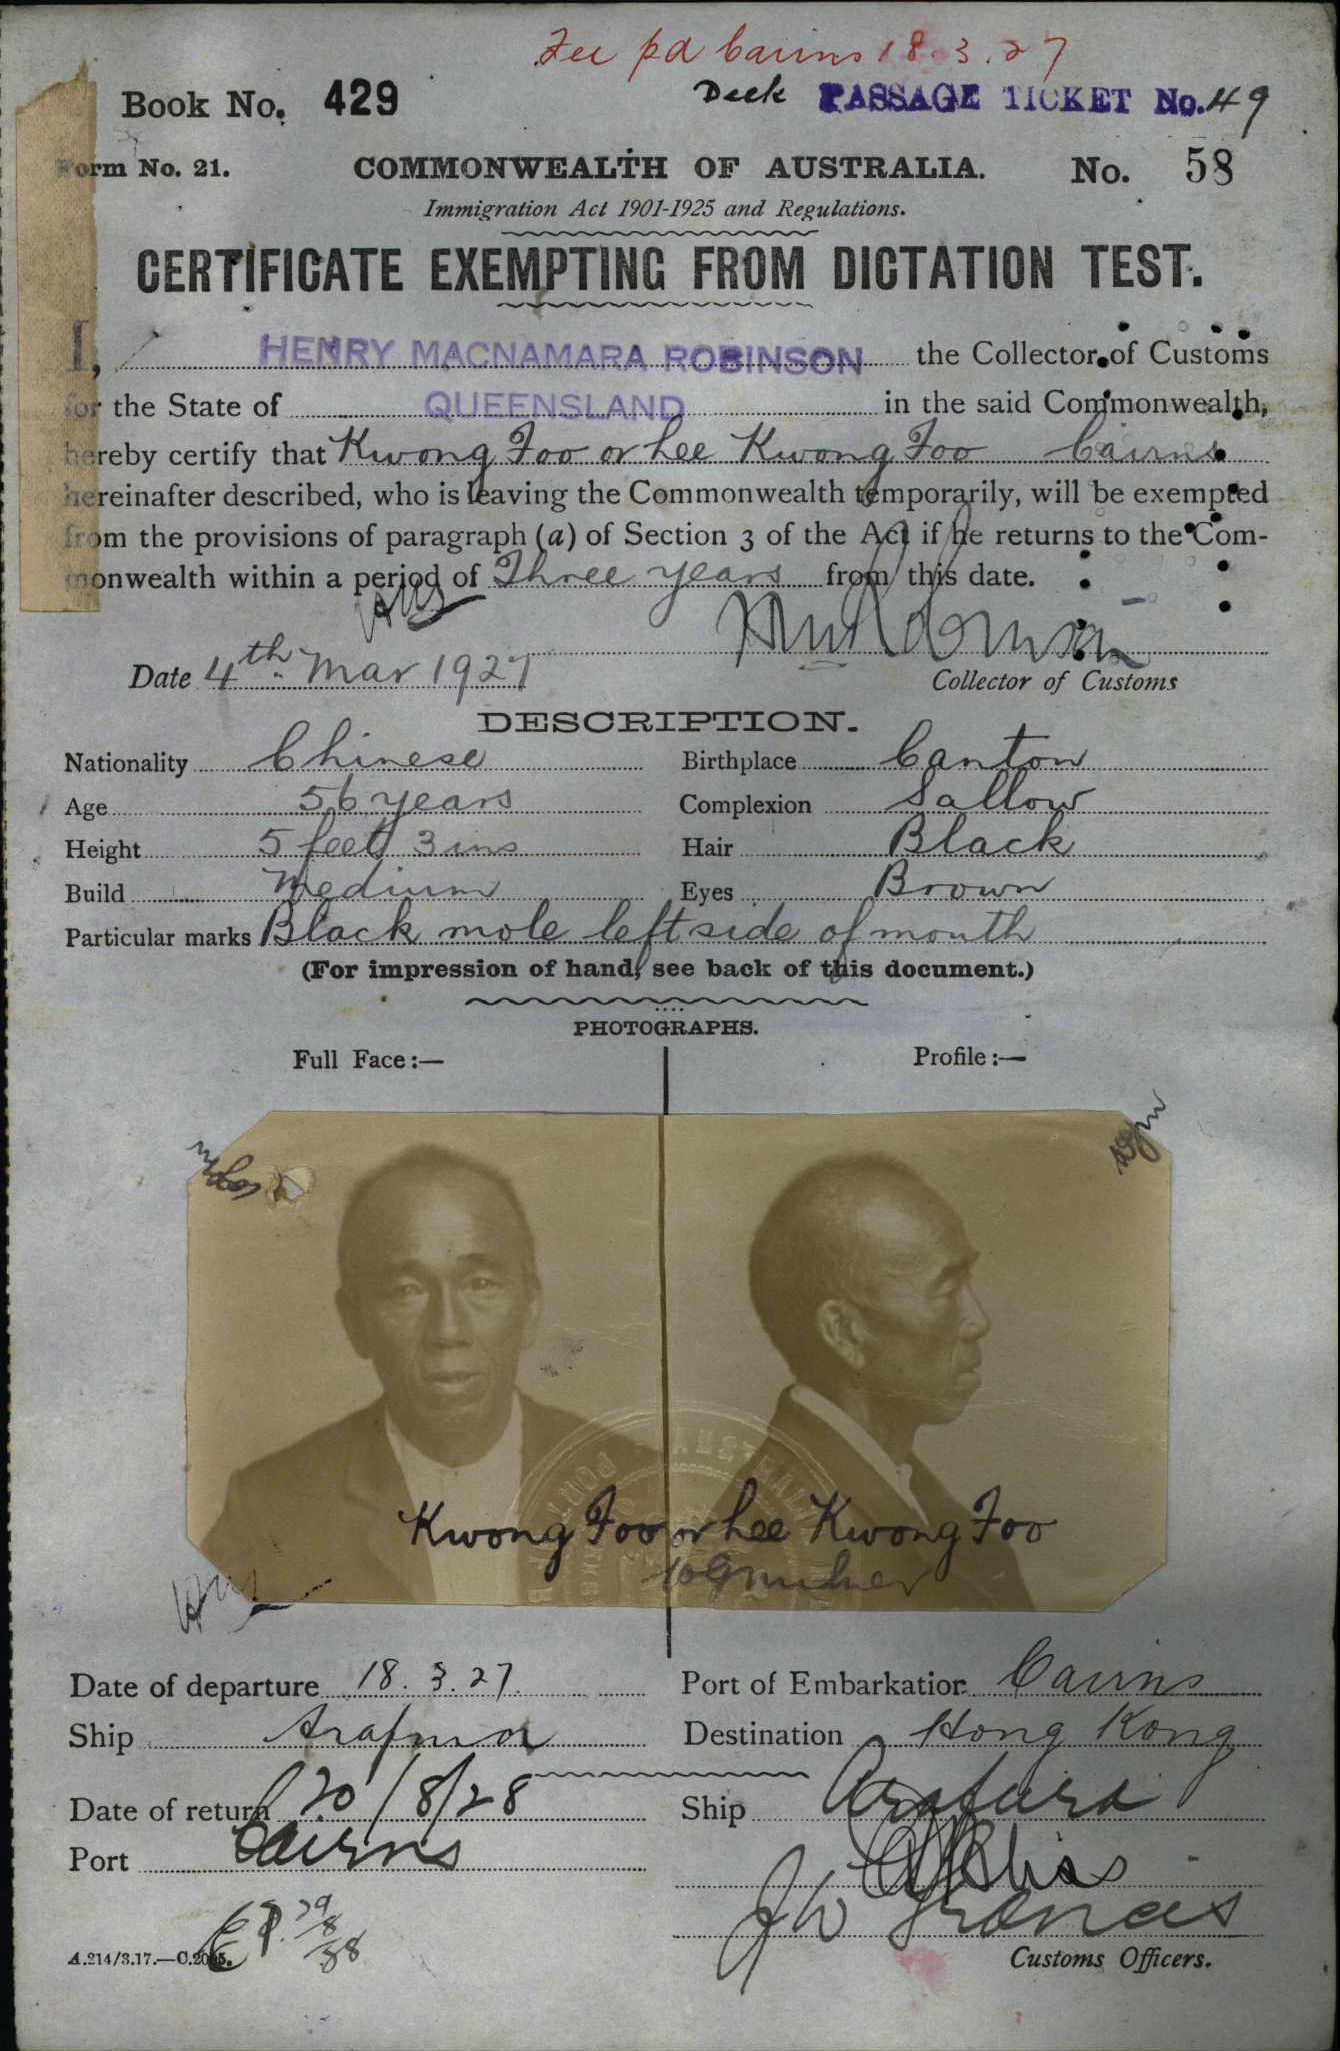 Fee pd Cairns 18.3.27
Book No. 429 Deck PASSAGE TICKET No. 49
Form No. 21. COMMONWEALTH OF AUSTRALIA. No. 58
Immigration Act 1901-1925 and Regulations.
CERTIFICATE EXEMPTING FROM DICTATION TEST.
I, HENRY MACNAMARA ROBINSON the Collector of Customs
for the State of QUEENSLAND in the said Commonwealth,
hereby certify that Kwong Foo or Lee Kwong Foo Cairns
hereinafter described, who is leaving the Commonwealth temporarily, will be exempted
from the provisions of paragraph (a) of Section 3 of the Act if he returns to the Com-
monwealth within a period of Three years from this date.
Date 4th Mar 1927
Collector of Customs
DESCRIPTION.
Nationality Chinese Birthplace Canton
Age 56 years Complexion Sallow
Height 5 feet 3 ins Hair Black
Build Medium Eyes Brown
Particular marks Black mole left side of mouth
(For impression of hand, see back of this document.)
PHOTOGRAPHS.
Full Face:— Profile:—
Kwong Foo or Lee Kwong Foo
Date of departure 18.3.27. Port of Embarkation Cairns
Ship Arafura Destination Hong Kong
Date of return 20/8/28 Ship Arafura
Port Cairns
J W Francis
Customs Officers.